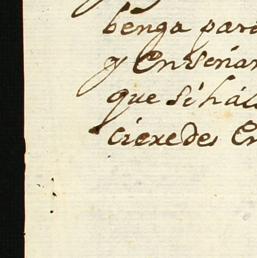 benga para
y Enseñar
que si hal
ciexedes En